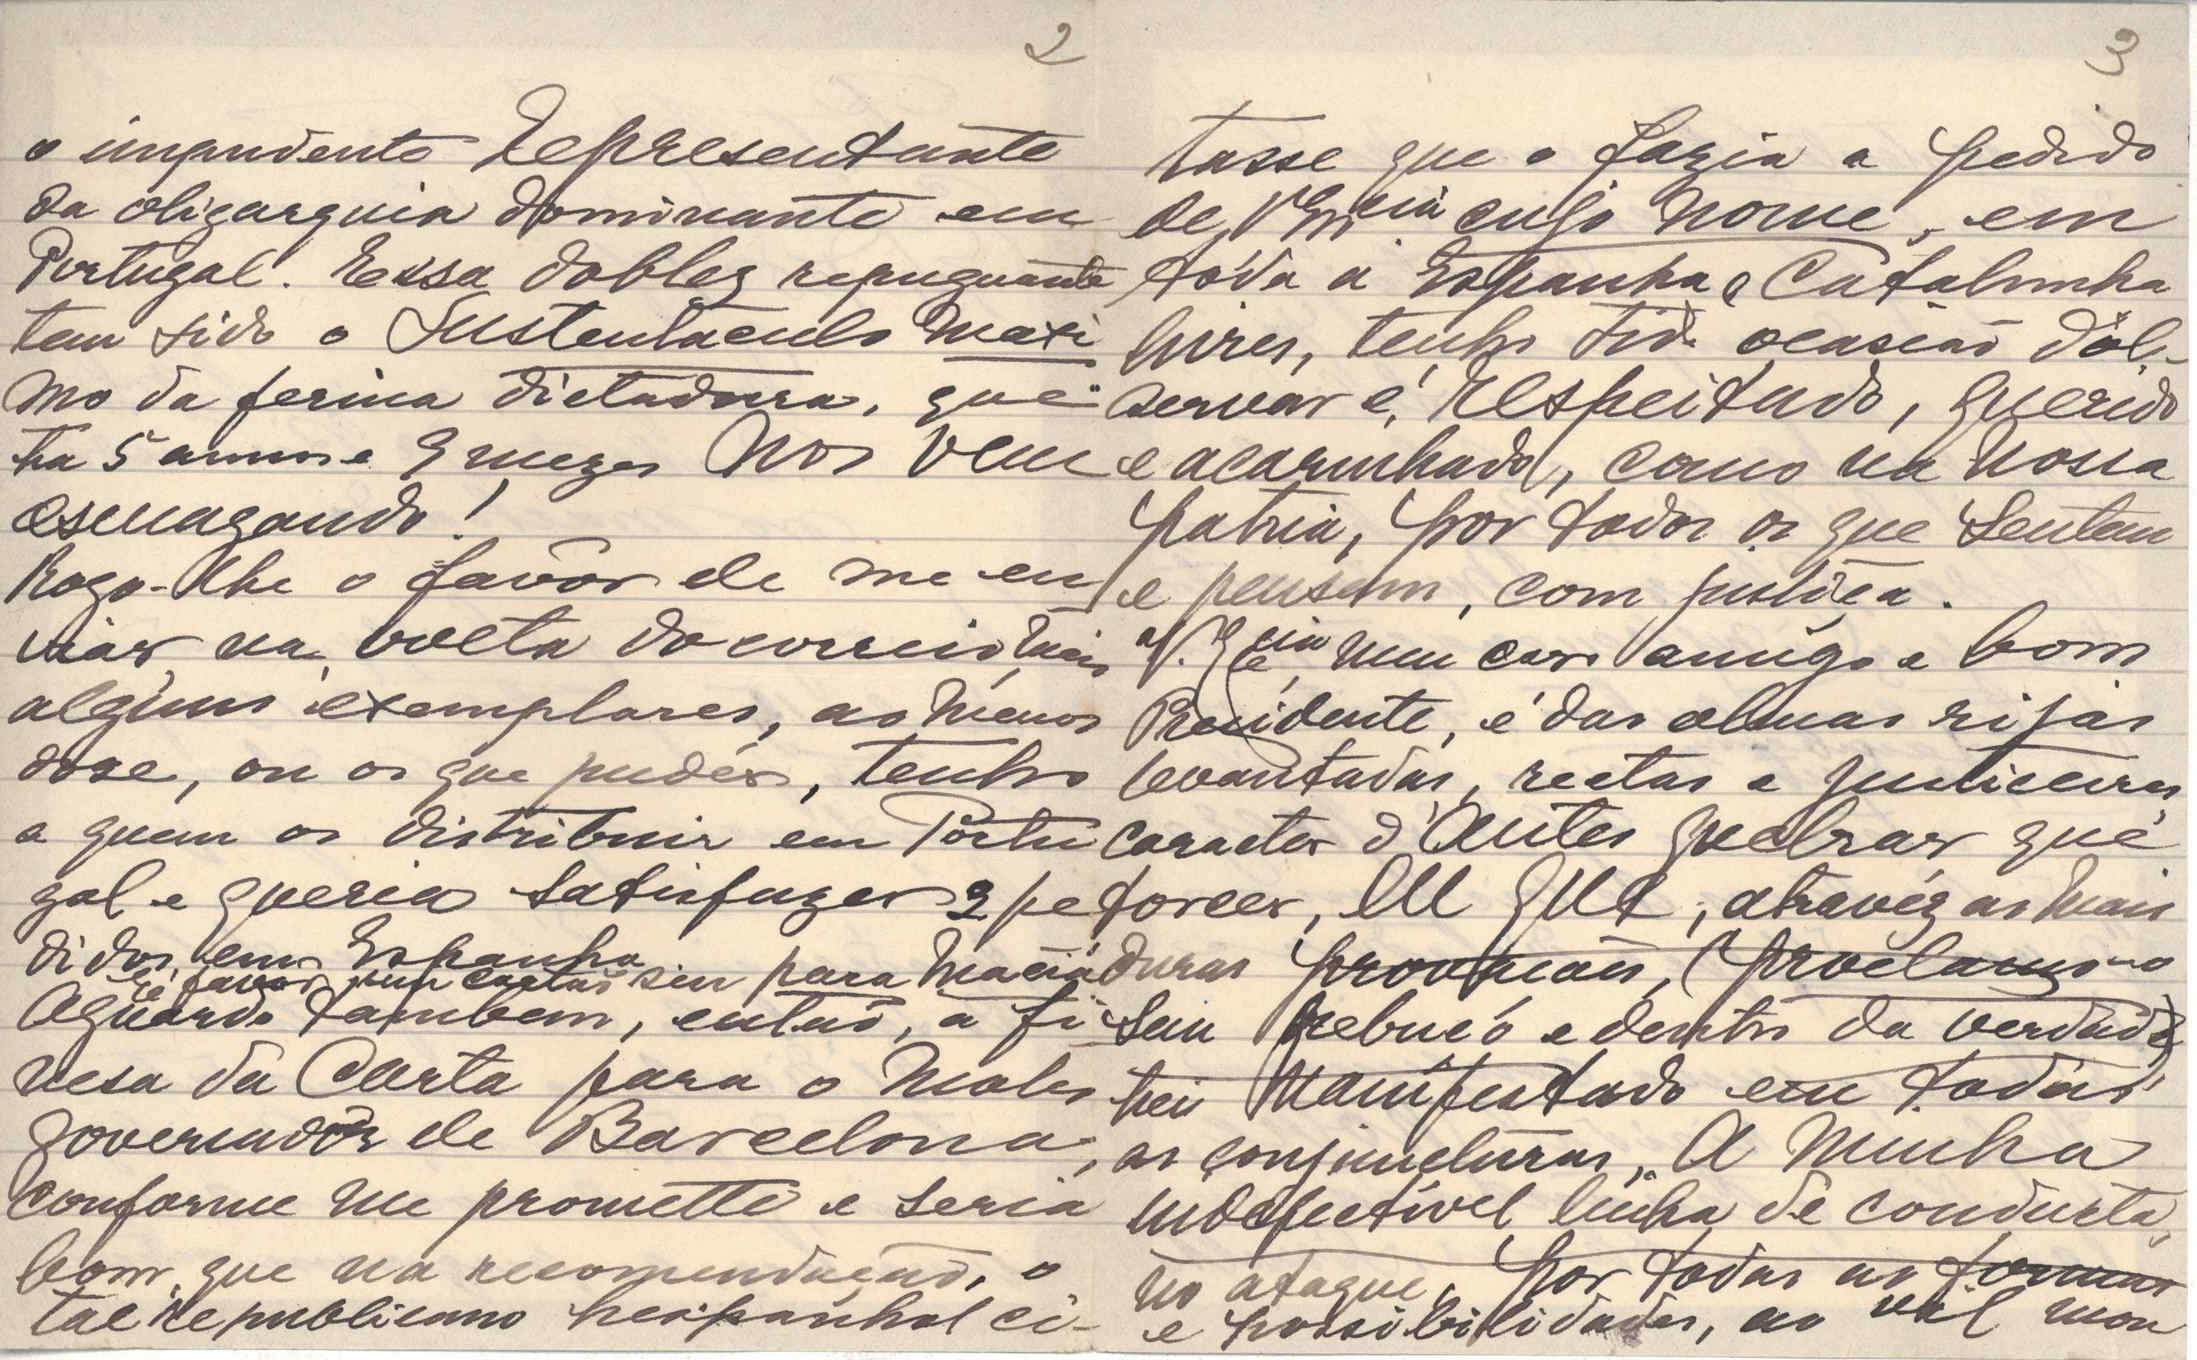 2
o impudente Representante
da oligarquia dominante em
Portugal. Essa doblez repugnante
tem sido o Sustentaculo maxi
mo da ferina dictadura, que
ha 5 annos e 9 mezes nos vem
esmagando!
Rogo-lhe o favôr de me en
viar na volta do correio mais
alguns exemplares, ao menos
dose, ou os que pudér, tenho
a quem os distribuir em Portu
gal e queria satisfazer 2 pe
didos em Espanha
e favor um cartão seu para Maciá
Aguardo tambem, então, a fi
nesa da Carta para o
governadôr de Barcelona,
conforme me promette e seria
bom, que na recomendação, o
tal republicano hespanhol ci-
3
tasse que o fazia a pedido
de V Ex cia cujo nome, em
tôda a Espanha e Catalunha
livres, tenho tido ocasião d'ob-
servar é, respeitado, querido
e acarinhado, como na nossa
Patria, por todos os que sentem
e pensam, com justiça.
V. Ex cia meu caro amigo e bom
Presidente, é das almas rijas
levantadas, rectas e justiceiras
caracter d'Antes quebrar que
torcer, em que, atravéz as mais
duras provações, (proclamo-o
sem rebuço e dentro da verdade)
hei manifestado em todas
as conjuncturas, A minha
indefectivel linha de conducta,
no ataque, por todas as formas
e possibilidades, ao vil mon